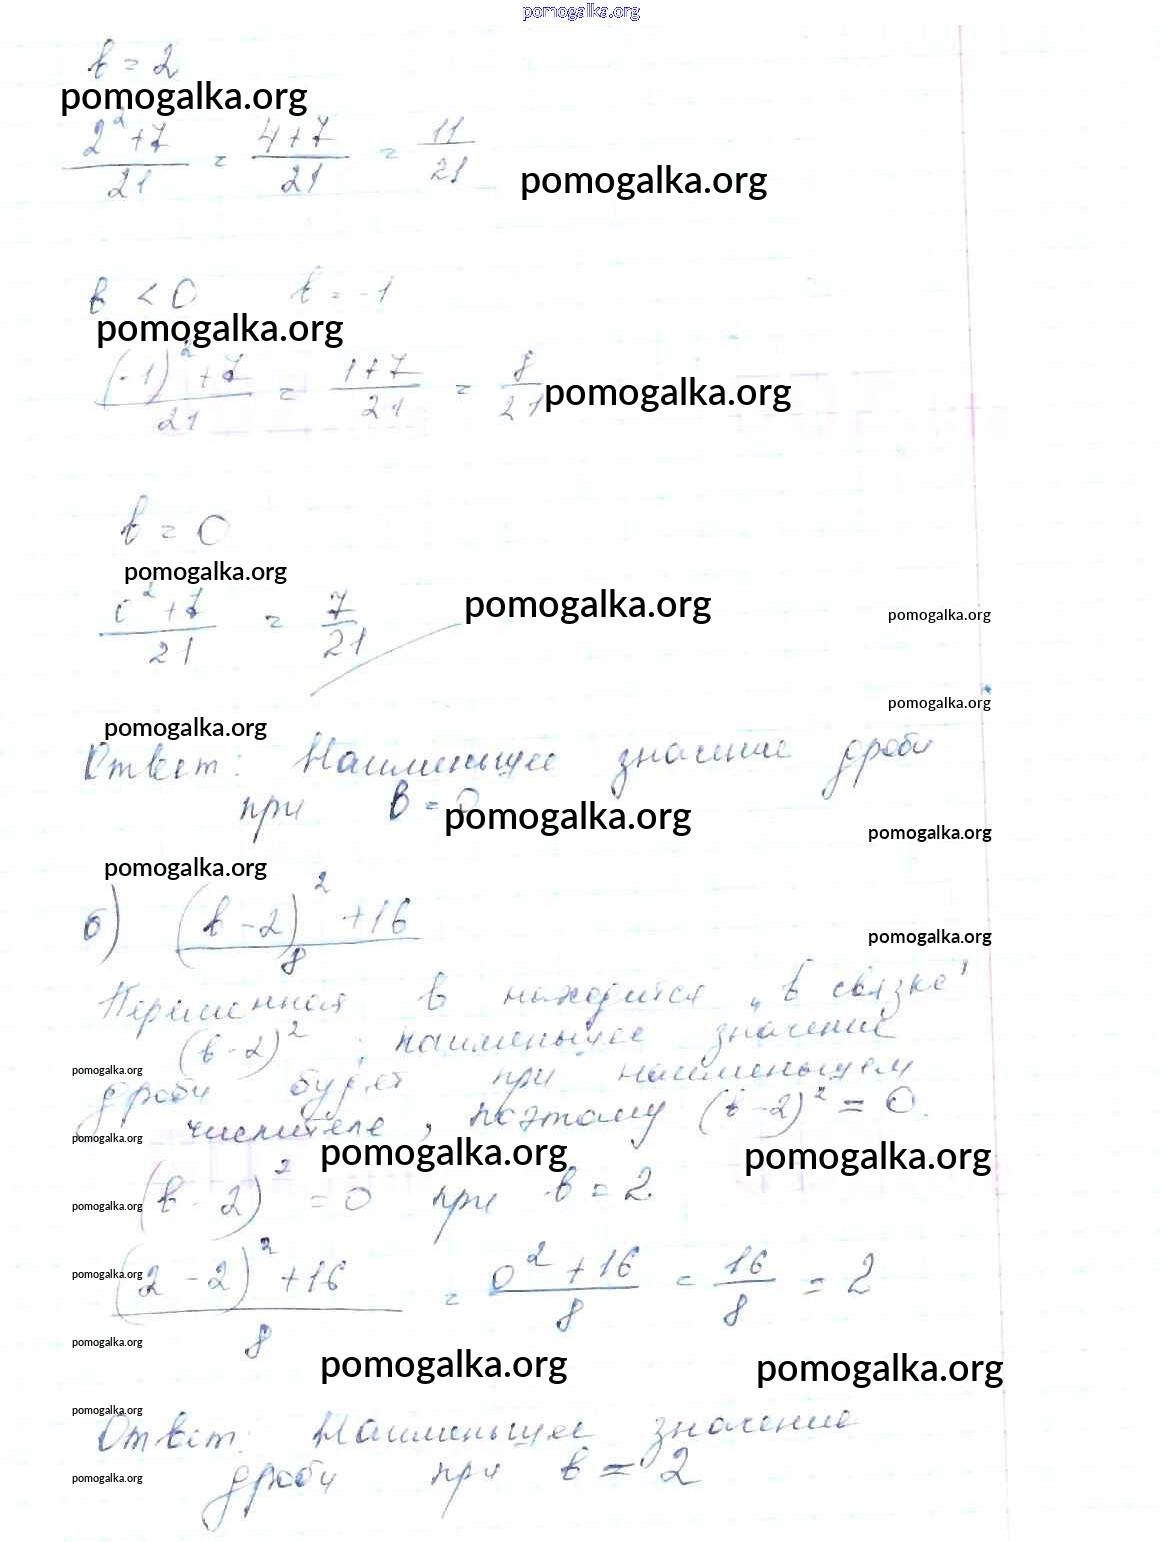 pomogalka.org
в = 2
pomogalka.org
(2² + 7)/21 = (4 + 7)/21 = 11/21
pomogalka.org
в < 0 в = -1
pomogalka.org
((-1)² + 7)/21 = (1 + 7)/21 = 8/21
pomogalka.org
в = 0
pomogalka.org
(0² + 7)/21 = 7/21
pomogalka.org
pomogalka.org
pomogalka.org
pomogalka.org
Ответ: Наименьшее значение дроби
при в = 0
pomogalka.org
pomogalka.org
pomogalka.org
б) ((в - 2)² + 16)/8
pomogalka.org
Переменная в находится „в связке"
(в - 2)²; наименьшее значение
pomogalka.org
дроби будет при наименьшем
числителе, поэтому (в - 2)² = 0.
pomogalka.org
pomogalka.org
pomogalka.org
(в - 2)² = 0 при в = 2.
pomogalka.org
((2 - 2)² + 16)/8 = (0² + 16)/8 = 16/8 = 2
pomogalka.org
pomogalka.org
pomogalka.org
pomogalka.org
pomogalka.org
Ответ: Наименьшее значение
дроби при в = 2
pomogalka.org